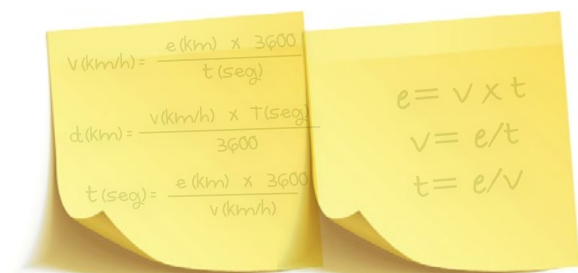 v(km/h)= e(km) x 3600 / t(seg)
d(km)= v(km/h) x T(seg) / 3600
t(seg)= e(km) x 3600 / v(km/h)
e= v x t
v= e/t
t= e/v